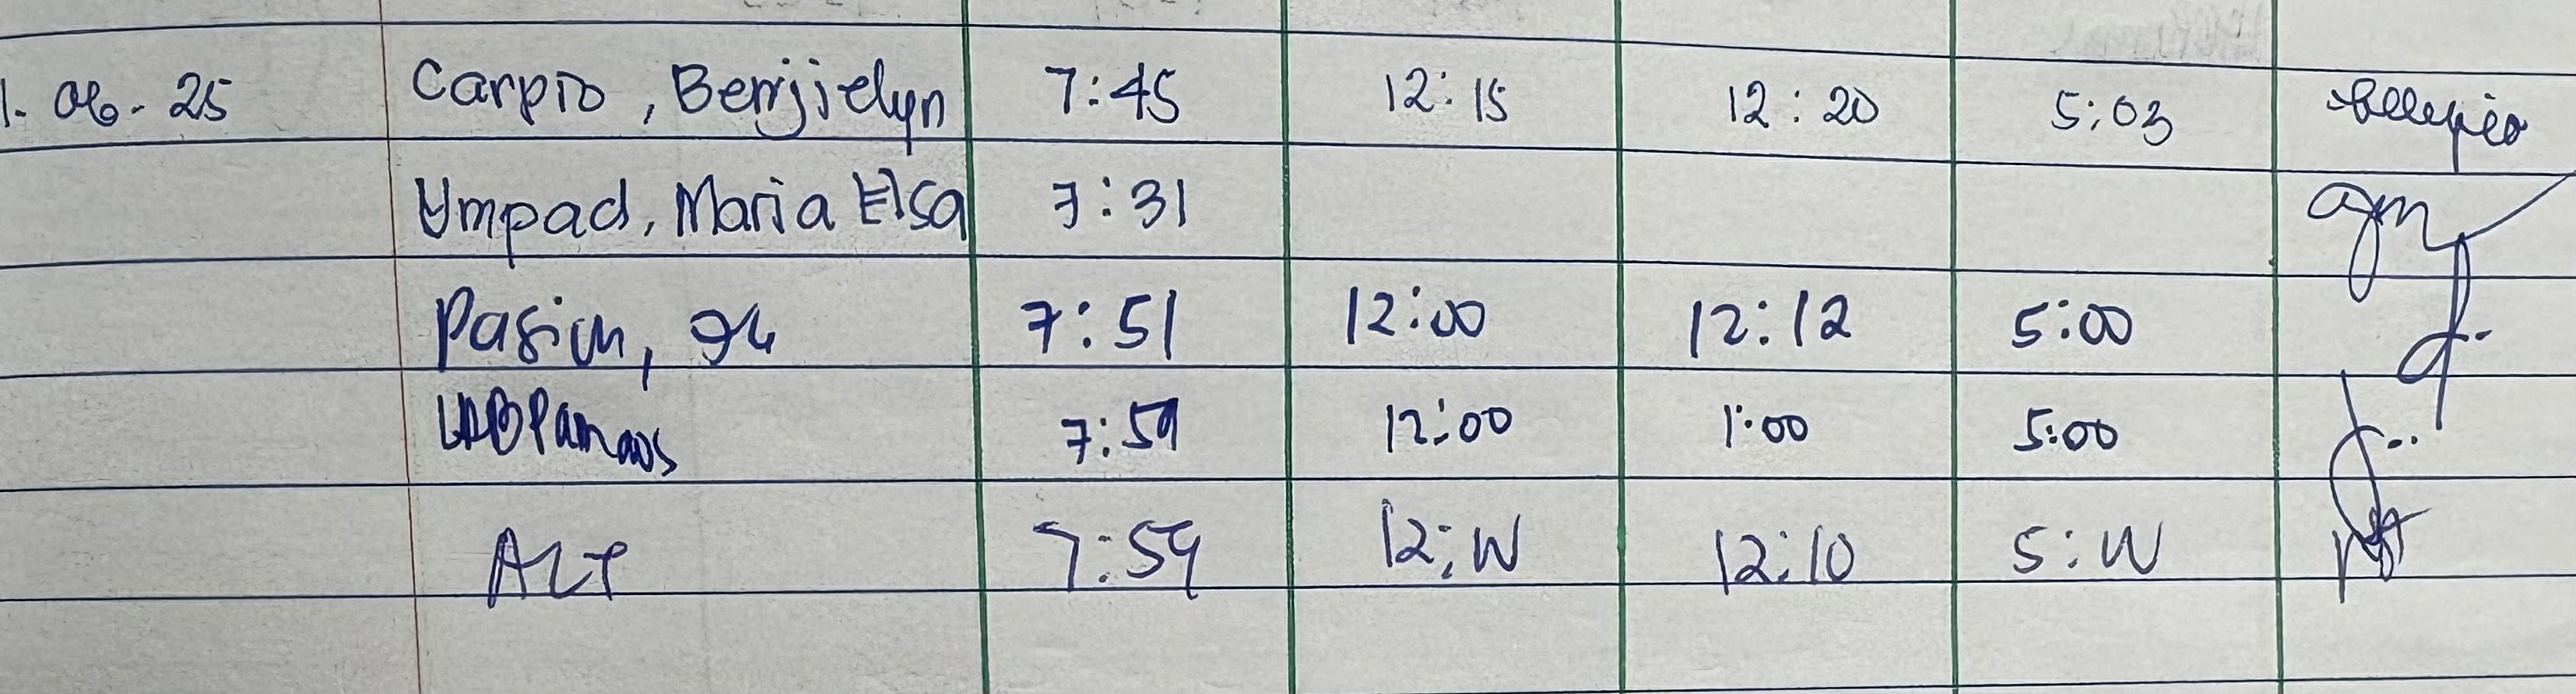 1. 06. 25 Carpio, Benjielyn 7:45 12:15 12:20 5:03
Umpad, Maria Elsa 7:31
7:51 12:00 12:12 5:00
7:59 12:00 1:00 5:00
ALP 7:59 12:00 12:10 5:00